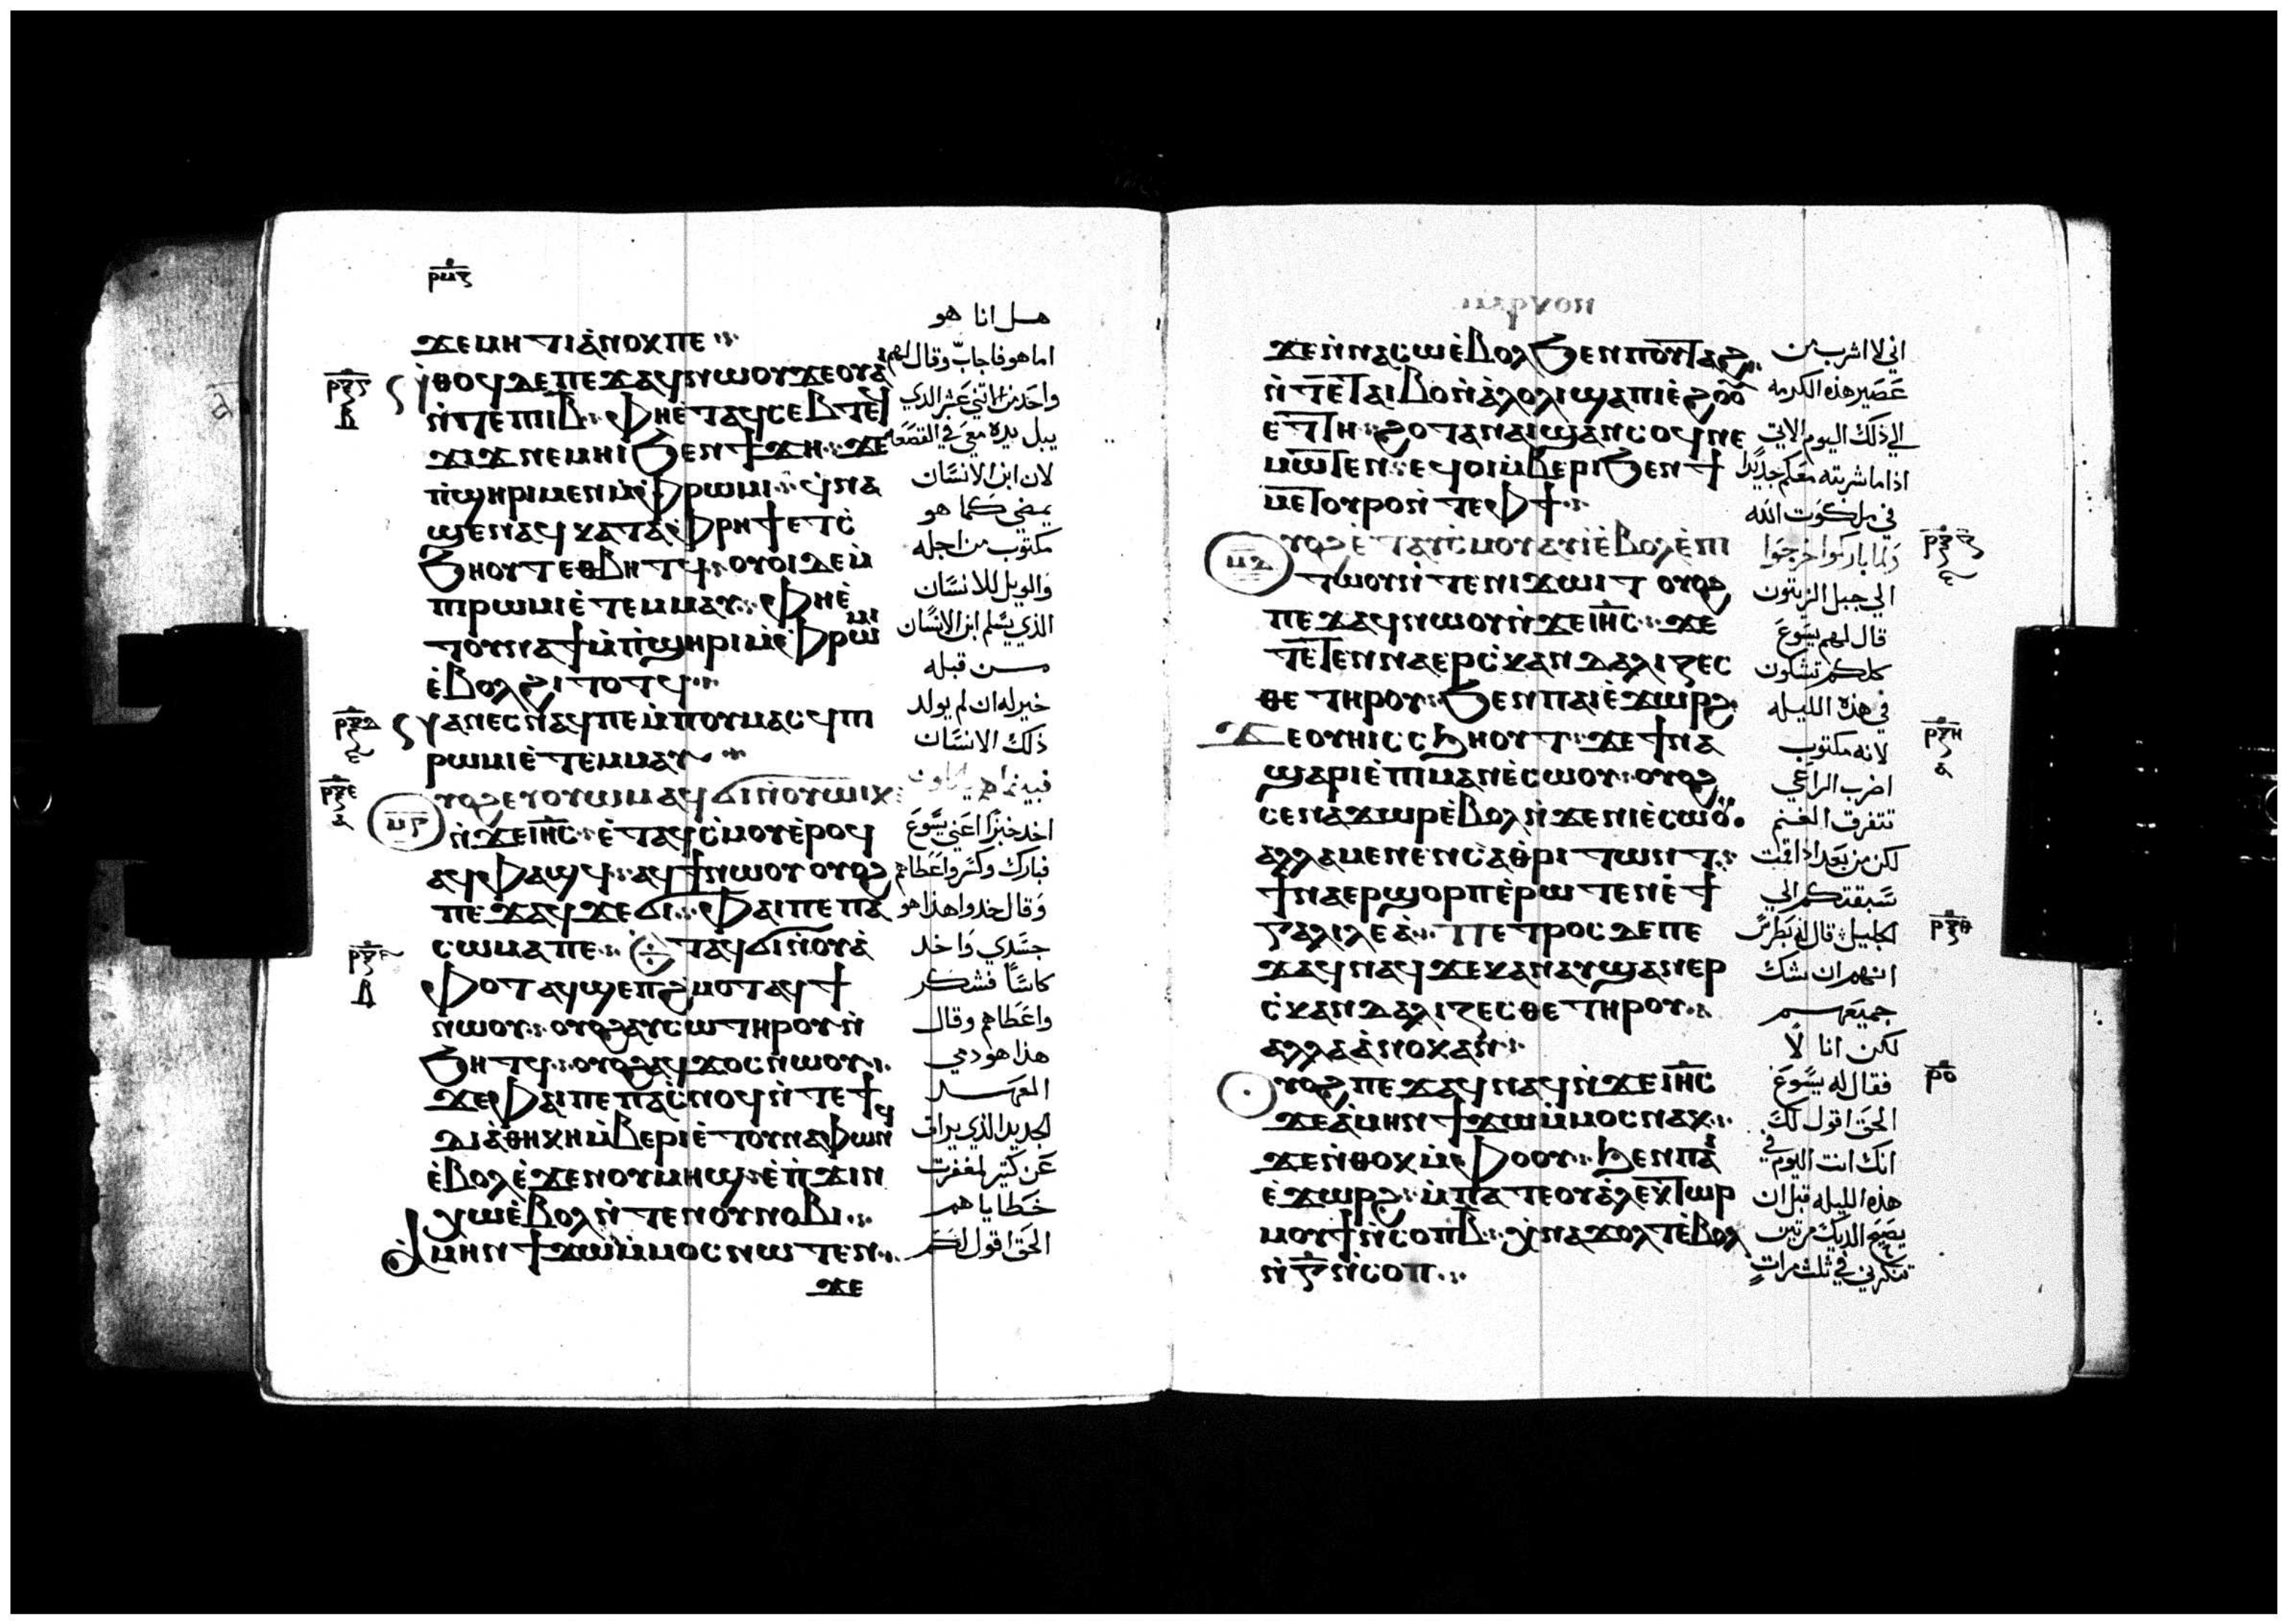 ⲣⲙⲋ
ϫⲉⲙⲏⲧⲓⲁ̀ⲛⲟⲕⲡⲉ
ⲛ̀ⲑⲟϥⲇⲉⲡⲉϫⲁϥⲛⲱⲟⲩϫⲉⲟⲩⲁⲓ
ⲛ̀ⲧⲉⲡⲓⲓⲃ ⲫⲏⲉ̀ⲧⲁϥⲥⲉⲃⲧⲉⲧ
ϫⲓϫⲛⲉⲙⲏⲓϧⲉⲛϯϫⲏ ϫⲉ
ⲡ̀ϣⲏⲣⲓⲙⲉⲛⲙ̀ⲫⲣⲱⲙⲓ ϥⲛⲁ
ϣⲉⲛⲁϥⲕⲁⲧⲁⲫⲣⲏϯⲉⲧⲥ̀
ϧⲏⲟⲩⲧⲉⲑⲃⲏⲧϥ ⲟⲩⲟⲓⲇⲉⲙ̀
ⲡⲓⲣⲱⲙⲓⲉ̀ⲧⲉⲙⲙⲁⲩ ⲫⲏⲉ̀
ⲧⲟⲩⲛⲁϯⲙ̀ⲡ̀ϣⲏⲣⲓⲙ̀ⲫⲣⲱⲙⲓ
ⲉ̀ⲃⲟⲗϩⲓⲧⲟⲧϥ
ⲛⲁⲛⲉⲥⲛⲁϥⲡⲉⲙ̀ⲡⲟⲩⲙⲁⲥϥⲡⲓ
ⲣⲱⲙⲓⲉ̀ⲧⲉⲙⲙⲁⲩ
ⲟⲩⲟϩⲉⲩⲟⲩⲱⲙⲁϥϭⲓⲛ̀ⲟⲩⲱⲓⲕ
ⲛ̀ϫⲉⲓⲏⲥ ⲉ̀ⲧⲁϥⲥ̀ⲙⲟⲩⲉ̀ⲣⲟϥ
ⲁϥⲫⲁϣϥ ⲁϥϯⲛⲱⲟⲩ ⲟⲩⲟϩ
ⲡⲉϫⲁϥϫⲉϭⲓ ⲫⲁⲓⲡⲉⲡⲁ
ⲥⲱⲙⲁⲡⲉ ⲉⲧⲁϥϭⲓⲛ̀ⲟⲩⲁ̀
ⲫⲟⲧⲁϥϣⲉⲡϩⲙⲟⲧⲁϥϯ
ⲛⲱⲟⲩ ⲟⲩⲟϩⲁⲩⲥⲱⲧⲏⲣⲟⲩⲛ̀
ϧⲏⲧϥ ⲟⲩⲟϩⲁϥϫⲟⲥⲛⲱⲟⲩ
ϫⲉⲫⲁⲓⲡⲉⲡⲁⲥ̀ⲛⲟϥⲛ̀ⲧⲉϯ
ⲇⲓⲁⲑⲏⲕⲏⲙ̀ⲃⲉⲣⲓⲉ̀ⲧⲟⲩⲛⲁⲫⲱⲛϥ
ⲉ̀ⲃⲟⲗⲉ̀ϫⲉⲛⲟⲩⲙⲏϣ ⲉ̀ⲡ̀ϫⲓⲛ
ⲭⲱⲉ̀ⲃⲟⲗⲛ̀ⲧⲉⲛⲟⲩⲛⲟⲃⲓ
ⲁ̀ⲙⲏⲛϯϫⲱⲙ̀ⲙⲟⲥⲛⲱⲧⲉⲛ
ϫⲉ
ⲣⲝⲋ
ⲣⲝⲇ
ⲣⲝⲉ
ⲙⲋ
هل انا هو
اما هو فاجاب وقال لهم
واحد من الاثني عشر الدي
يبل يده معي في القصعه
لان ابن الانسان
يمضي كما هو
مكتوب من اجله
والويل للانسان
الدي يسلم ابن الانسان
من قبله
خير له ان لم يولد
ذلك الانسان
فبينما هم ياكلون
اخد خبزا اعني يسوع
فبارك وكسر واعطاهم
وقال خدوا هذا هو
جسدي واخد
كاسا فشكر
واعطاهم وقال
هذا هو دمي
العهد
الجديد الذي يراق
عن كتير لمغفرت
خطاياهم
الحق اقول لكم
ϫⲉⲛ̀ⲛⲁⲥⲱⲉ̀ⲃⲟⲗϧⲉⲛⲡⲟⲩⲧⲁϩ
ⲛ̀ⲧⲉⲧⲁⲓⲃⲟⲛ̀ⲁ̀ⲗⲟⲗⲓϣⲁⲡⲓⲉ̀ϩⲟⲟⲩ
ⲉⲧⲧⲏ ϩⲟⲧⲁⲛⲁⲓϣⲁⲛⲥⲟϥⲛⲉ
ⲙⲱⲧⲉⲛ ⲉϥⲟⲓⲙ̀ⲃⲉⲣⲓϧⲉⲛϯ
ⲙⲉⲧⲟⲩⲣⲟⲛ̀ⲧⲉⲫϯ
ⲟⲩⲟϩⲉ̀ⲧⲁⲩⲥ̀ⲙⲟⲩⲁⲩⲓ̀ⲉ̀ⲃⲟⲗⲉ̀ⲡⲓ
ⲧⲱⲟⲩⲛ̀ⲧⲉⲛⲓϫⲱⲓⲧ ⲟⲩⲟϩ
ⲡⲉϫⲁϥⲛⲱⲟⲩⲛ̀ϫⲉⲓⲏⲥ ϫⲉ
ⲧⲉⲧⲉⲛⲛⲁⲉⲣⲥ̀ⲕⲁⲛⲇⲁⲗⲓⲍⲉⲥ
ⲑⲉⲧⲏⲣⲟⲩ ϧⲉⲛⲡⲁⲓⲉ̀ϫⲱⲣϩ
ϫⲉⲟⲩⲏⲓⲥⲥϧⲏⲟⲩⲧ ϫⲉϯⲛⲁ
ϣⲁⲣⲓⲉ̀ⲡⲓⲙⲁⲛⲉ̀ⲥⲱⲟⲩ ⲟⲩⲟϩ
ⲥⲉⲛⲁϫⲱⲣⲉ̀ⲃⲟⲗⲛ̀ϫⲉⲛⲓⲉ̀ⲥⲱⲟⲩ
ⲁⲗⲗⲁⲙⲉⲛⲉⲛⲥⲁⲑⲣⲓⲧⲱⲛⲧ
ϯⲛⲁⲉⲣϣⲟⲣⲡⲉ̀ⲣⲱⲧⲉⲛⲉ̀ϯ
ⲅⲁⲗⲓⲗⲉⲁ̀ ⲡⲉⲧⲣⲟⲥⲇⲉⲡⲉ
ϫⲁϥⲛⲁϥϫⲉⲕⲁⲛⲁⲩϣⲁⲛⲉⲣ
ⲥ̀ⲕⲁⲛⲇⲁⲗⲓⲍⲉⲥⲑⲉⲧⲏⲣⲟⲩ
ⲁⲗⲗⲁⲁ̀ⲛⲟⲕⲁⲛ
ⲟⲩⲟϩⲡⲉϫⲁϥⲛⲁϥⲛ̀ϫⲉⲓⲏⲥ
ϫⲉⲁ̀ⲙⲏⲛϯϫⲱⲙ̀ⲙⲟⲥⲛⲁⲕ
ϫⲉⲛ̀ⲑⲟⲕⲙ̀ⲫⲟⲟⲩ ϧⲉⲛⲡⲁⲓ
ⲉ̀ϫⲱⲣϩ ⲙ̀ⲡⲁⲧⲉⲟⲩⲁⲗⲉⲕⲧⲱⲣ
ⲙⲟⲩϯⲛ̀ⲥⲟⲡⲃ ⲭⲛⲁϫⲟⲗⲧⲉ̀ⲃⲟⲗ
ⲛ̀ⲅⲛ̀ⲥⲟⲡ
ⲙⲍ
اني لا اشرب من
عصير هذه الكرمه
الي ذلك اليوم الاتي
اذا ما شربته معكم جديدا
في ملكوت الله
ولما باركوا خرجوا
الي جبل الزيتون
قال لهم يسوع
كلكم تشكون
في هذه الليله
لانه مكتوب
اضرب الراعي
تتفرق الغنم
لكن من بعد اذا قمت
سبقتكم الي
الجليل قال له بطرس
انهم ان شك
جميعهم
لكن انا لا
فقال له يسوع
الحق اقول لك
انك انت اليوم في
هذه الليله قبل ان
يصيح الديك مرتين
تنكرني في ثلث مرات
ⲣⲝⲍ
ⲣⲝⲏ
ⲣⲝⲑ
ⲣⲟ